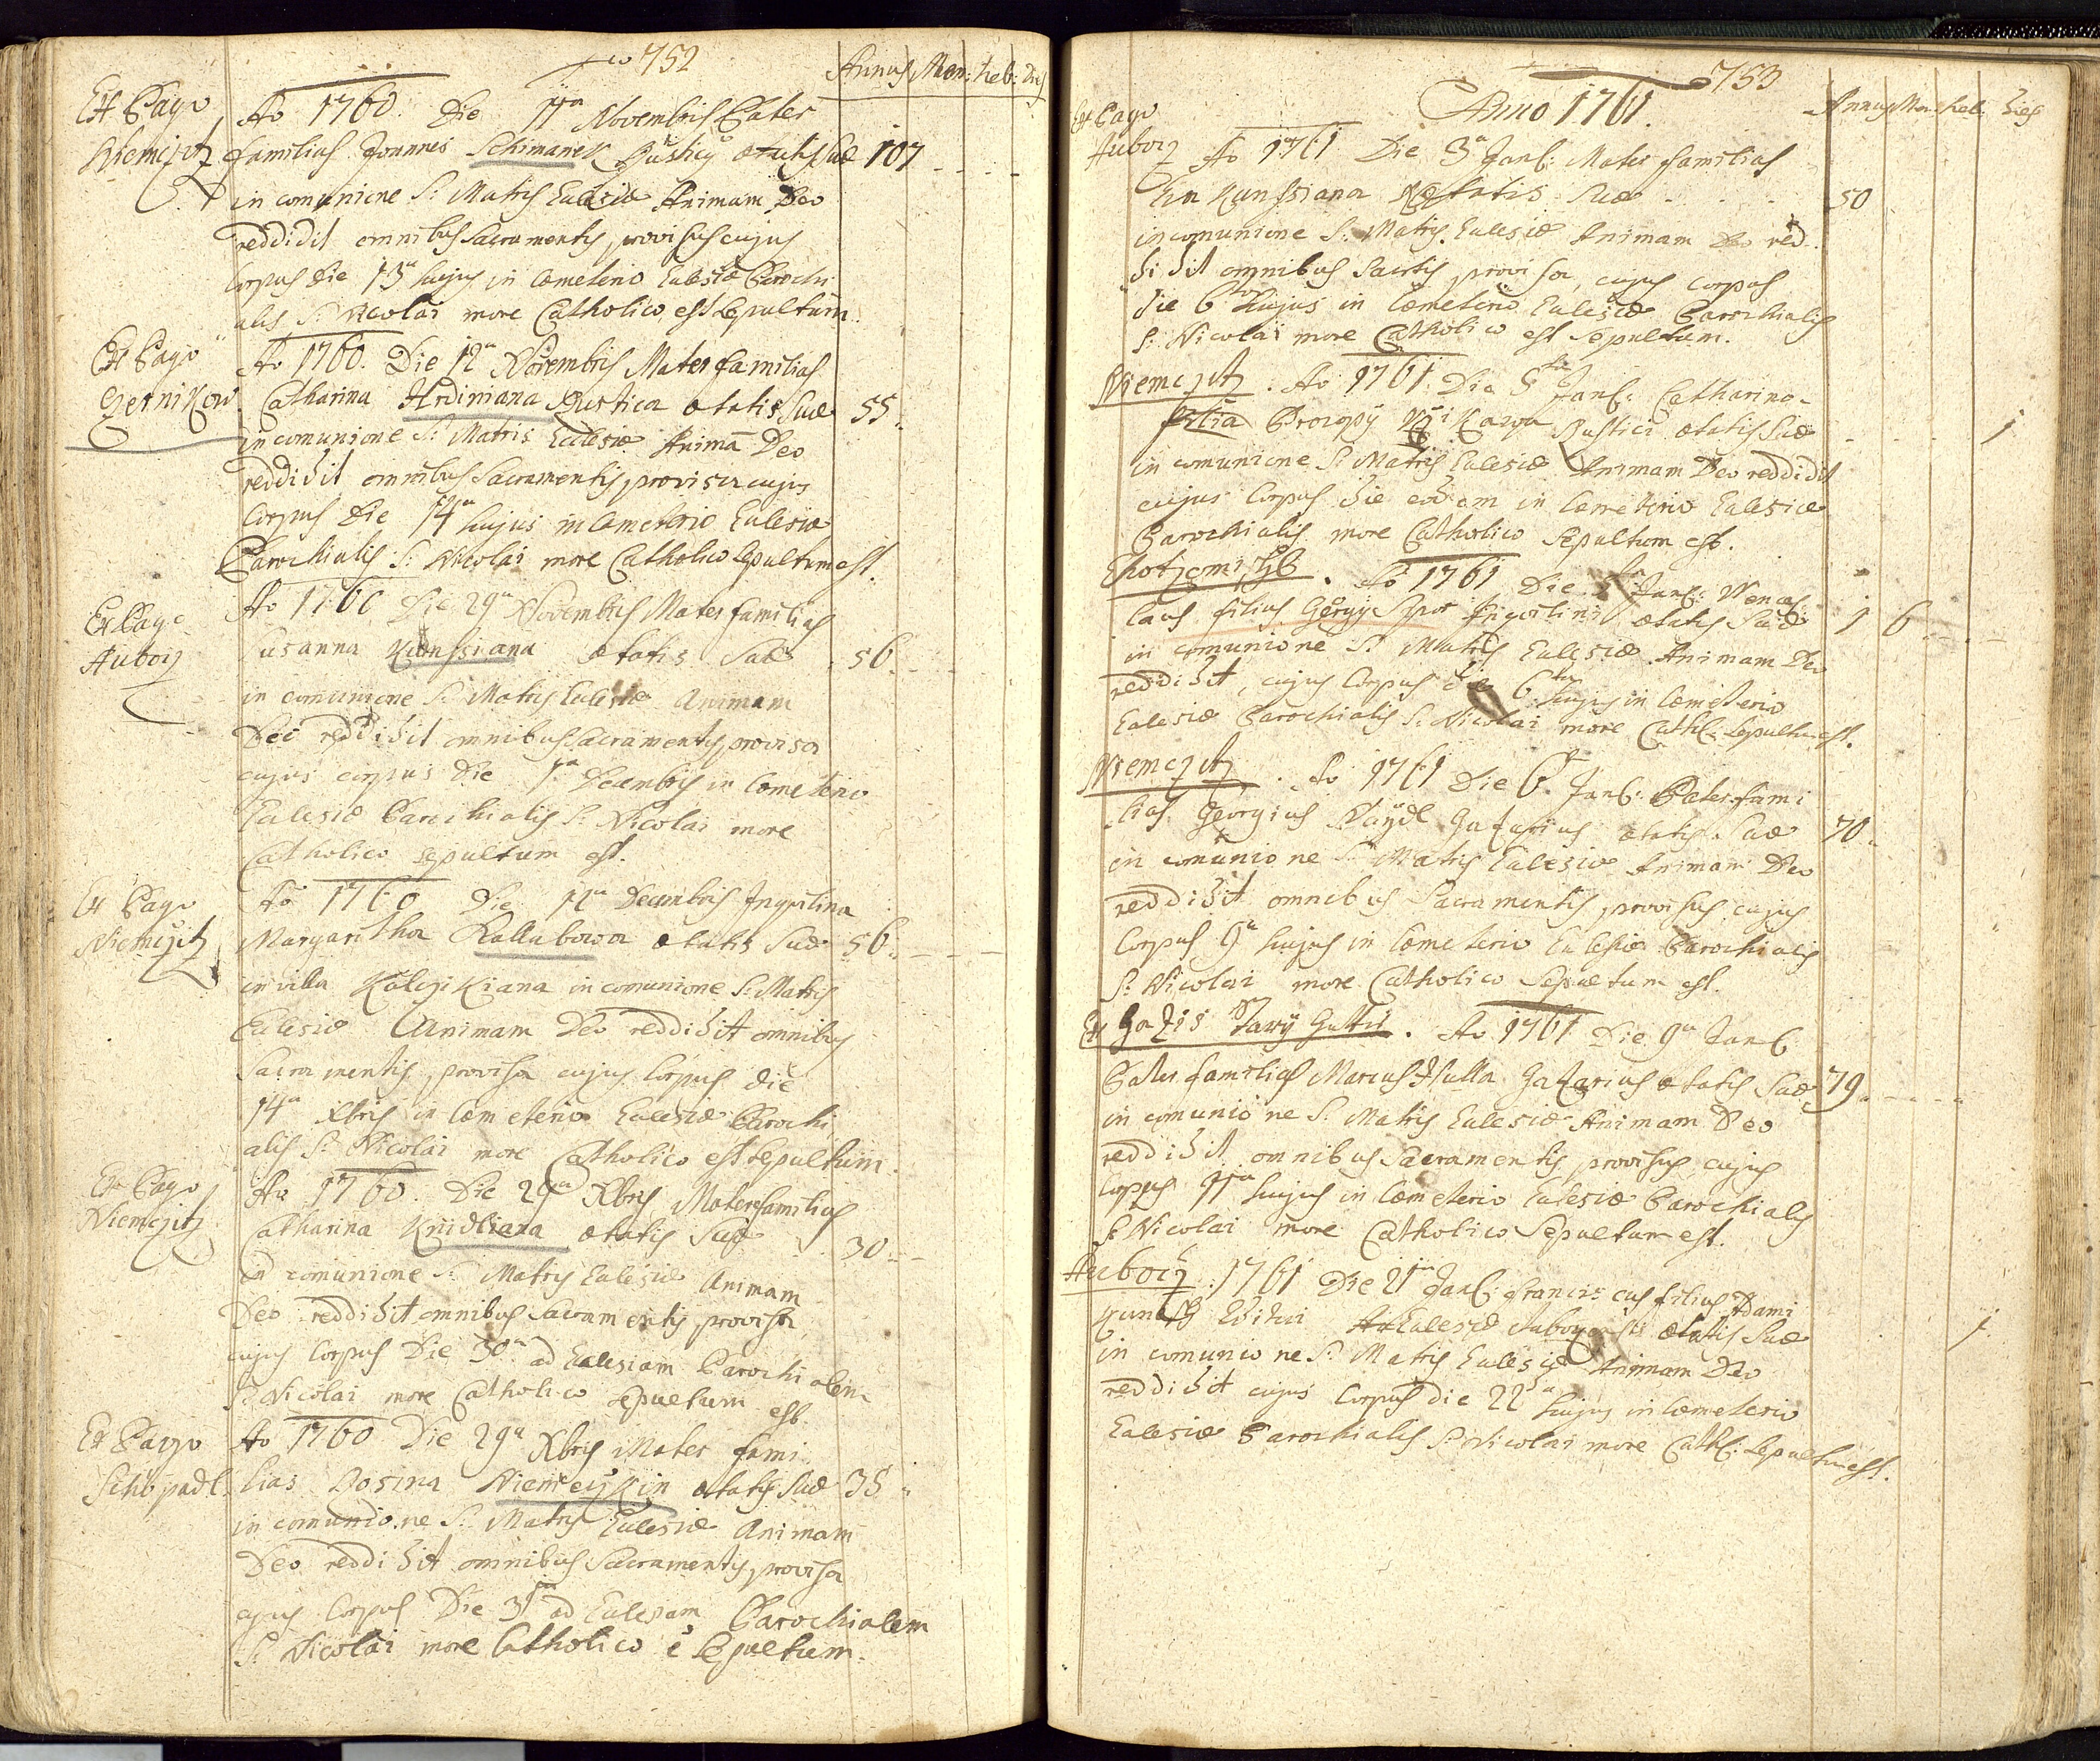 752
Annus Men: heb: Dies
Ex Pago Ao 1760. Die 11a Novembris Pater
Niemczitz familias Joannes Schimanek Rusticus aetatis suae 107
in comunione S: Matris Eclesiae Animam Deo
reddidit omnibus Sacramentis provisus cujus
Corpus Die 13a hujus in Coemeterio Eclesiae Parochi
alis S: Nicolai more Catholico est Sepultum.
Ex Pago Ao 1760. Die 12a Novembris Mater familias
Czernikow Catharina Hrdiniana Rustica aetatis suae 55.
in comunione S: Matris Eclesiae Animã Deo
reddidit omnibus Sacramentis provisa cujus
Corpus Die 14a hujus in Coemeterio Eclesiae
Parochialis S: Nicolai more Catholico Sepultum est.
Ex Pago Ao 1760 Die 29a Novembris Mater familias
Auborz Susanna Kunssiana aetatis Suae 56
in comunione S: Matris Eclesiae Animam
Deo reddidit omnibus Sacramentis provisa
cujus corpus Die 1a Decembris in Coemeterio
Eclesiae Parochialis S: Nicolai more
Catholico sepultum est.
Ex Pago Ao 1760 Die 12a Decembris Inquilina
Niemczitz Margaritha Kallabowa aetatis Suae 56.
in villa Kalczikiana in comunione S: Matris
Eclesiae Animam Deo reddidit omnibus
Sacramentis provisa cujus Corpus die
14a Xbris in Coemeterio Eclesiae Parochi
alis S: Nicolai more Catholico est Sepultum.
Ex Pago Ao 1760. Die 29a Xbris Mater familias
Niemczitz Catharina Knidliana aetatis Suae 30.
in comunione S: Matris Eclesiae Animam
Deo reddidit omnibus Sacramentis provisa
cujus Corpus Die 30a ad Eclesiam Parochialem
S: Nicolai more Catholico sepultum est.
Ex Pago Ao 1760 Die 29a Xbris Mater fami
Schöpadl. lias Rosina Niemeczkin aetatis Suae 35
in comunione S: Matris Eclesiae Animam
Deo reddidit omnibus Sacramentis provisa
cujus Corpus Die 31a ad Eclesiam Parochialem
S: Nicolai more Catholico ẽ Sepultum.
753
Anno 1761.
Annus Men: heb: Dies
Ex Pago
Auborz Ao 1761 Die 3a Janl: Mater familias
Eva Kunssiana Aetatis Suae 50
in comunione S: Matris Eclesiae Animam Deo red
didit omnibus Sacrtis provisa, cujus corpus
die 6ta hujus in Coemeterio Eclesiae Parochialis
S: Nicolai more Catholico est sepultum.
Niemczitz. Ao 1761. Die 5ta Janl: Catharina
filia Procopÿ Rustici aetatis Suae 1
in comunione S: Matris Eclesiae Animam Deo reddidit
cujus Corpus die eodem in Coemeterio Eclesiae
Parochialis more Catholico Sepultum est.
Chotzomischl. Ao 1761 Die 5ta Janl: Wences
laus filius Görgÿ Spor Inquilini aetatis Suae 1 6
in comunione S: Matris Eclesiae Animam Deo
reddidit, cujus Corpus die 6ta hujus in Coemeterio
Eclesiae Parochialis S: Nicolai more Cathl: Sepultum est.
Niemczitz. Ao 1761 Die 6ta Janl: Pater fami
lias Georgius Waÿdl Gazarius aetatis Suae 70.
in comunione S: Matris Eclesiae Animam Deo
reddidit omnibus Sacramentis provisus cujus
Corpus 9a hujus in Coemeterio Eclesiae Parochialis
S: Nicolai more Catholico Sepultum est.
Ex Gazis Starÿ Guttii. Ao 1761 Die 9a Janl:
Pater familias Marcus Hulla Gazarius aetatis Suae 79
in comunione S: Matris Eclesiae Animam Deo
reddidit omnibus Sacramentis provisus cujus
Corpus 11ma hujus in Coemeterio Eclesiae Parochialis
S: Nicolai more Catholico Sepultum est.
Auborz. 1761 Die 21ma Janl: Franciscus filius Adami
Aeditui Eclesiae aetatis Suae 1
in comunione S: Matris Eclesiae Animam Deo
reddidit cujus Corpus die 22da hujus in Coemeterio
Eclesiae Parochialis S: Nicolai more Cathl: Sepultum est.